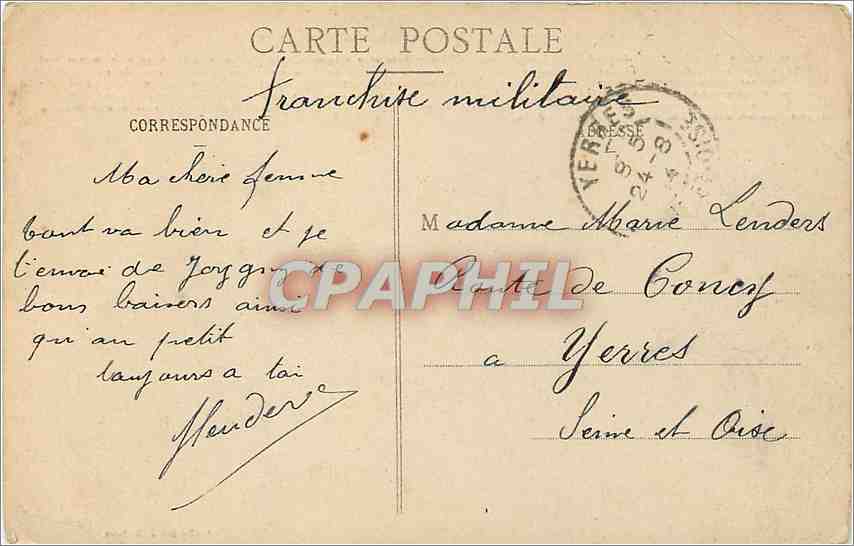 CARTE POSTALE
franchise militaire
CORRESPONDANCE
ADRESSE
YERRES
24-8
Ma chère femme
tout va bien et je
t'envoi de Joygny de
bons baisers ainsi
qu'au petit
toujours a toi
HLenders
Madame Marie Lenders
Route de Concy
a Yerres
Seine et Oise
CPAPHIL